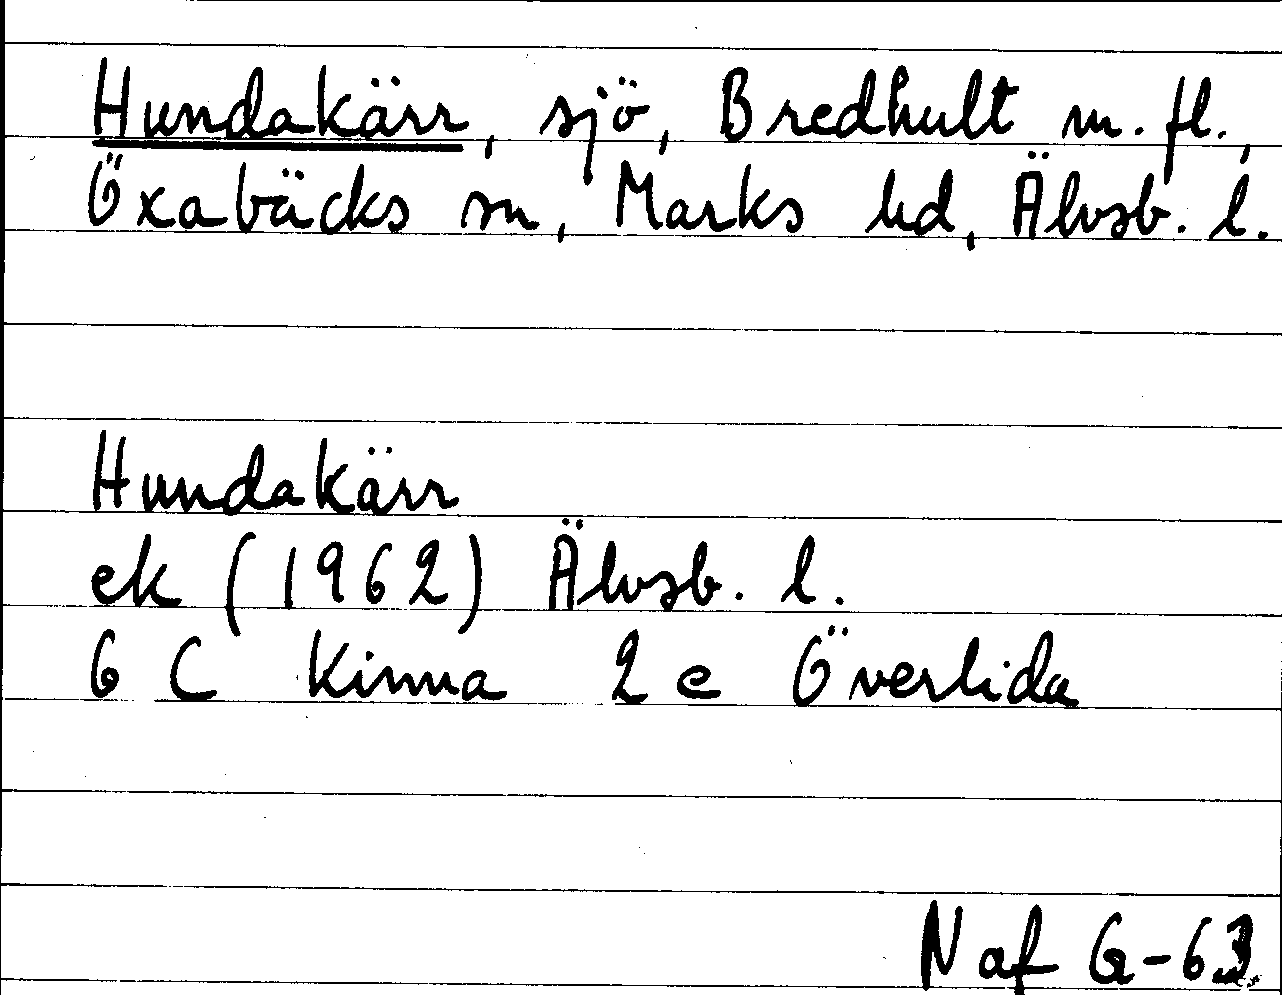 Hundakärr, sjö, Bredhult m. fl.,
Öxabäcks sn, Marks hd, Älvsb. l.
Hundakärr
ek (1962) Älvsb. l.
6 C Kinna 2 e Överlida
Naf G-63